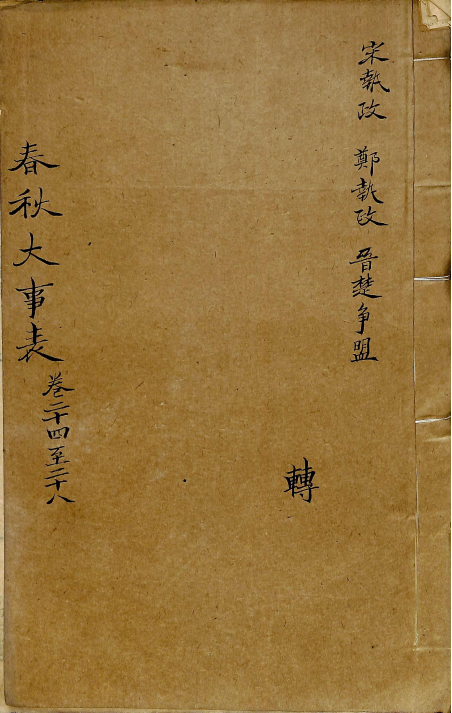 宋執政　鄭執政　晉楚争盟
轉
春秋大事表　卷二十四至二十八